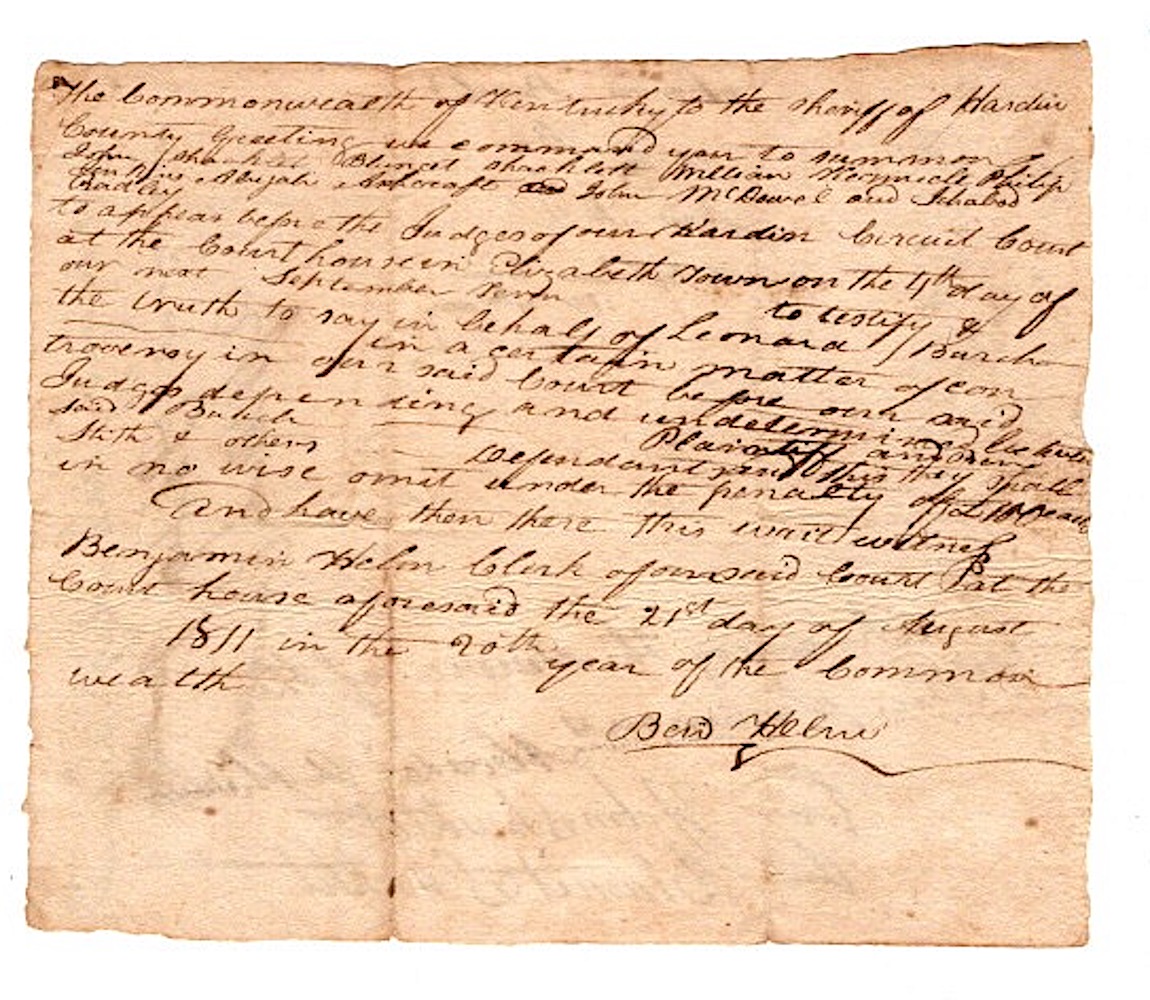 The Commonwealth of Kentucky to the Sheriff of Hardin
County Greeting we command you to summon
John Shacklet Blancet Shacklett William Philip
Jenkins Abijah Ashcraft and John McDowel and Ichabod
Radley
to appear before the Judges of our Hardin Circuit Court
at the Court house in Elizabeth Town on the 4th day of
our next September Term to testify &
the truth to say in behalf of Leonard Burch
in a certain matter of con
troversy in our said Court before our said
Judges depending and undetermined between
said Burch Plaintiff and
Stith & others Defendants this they shall
in no wise omit under the penalty of £100 each
And have then there this writ witness
Benjamin Helm Clerk of our said Court at the
Court house aforesaid the 21st day of August
1811 in the 20th year of the Common
wealth
Ben Helm